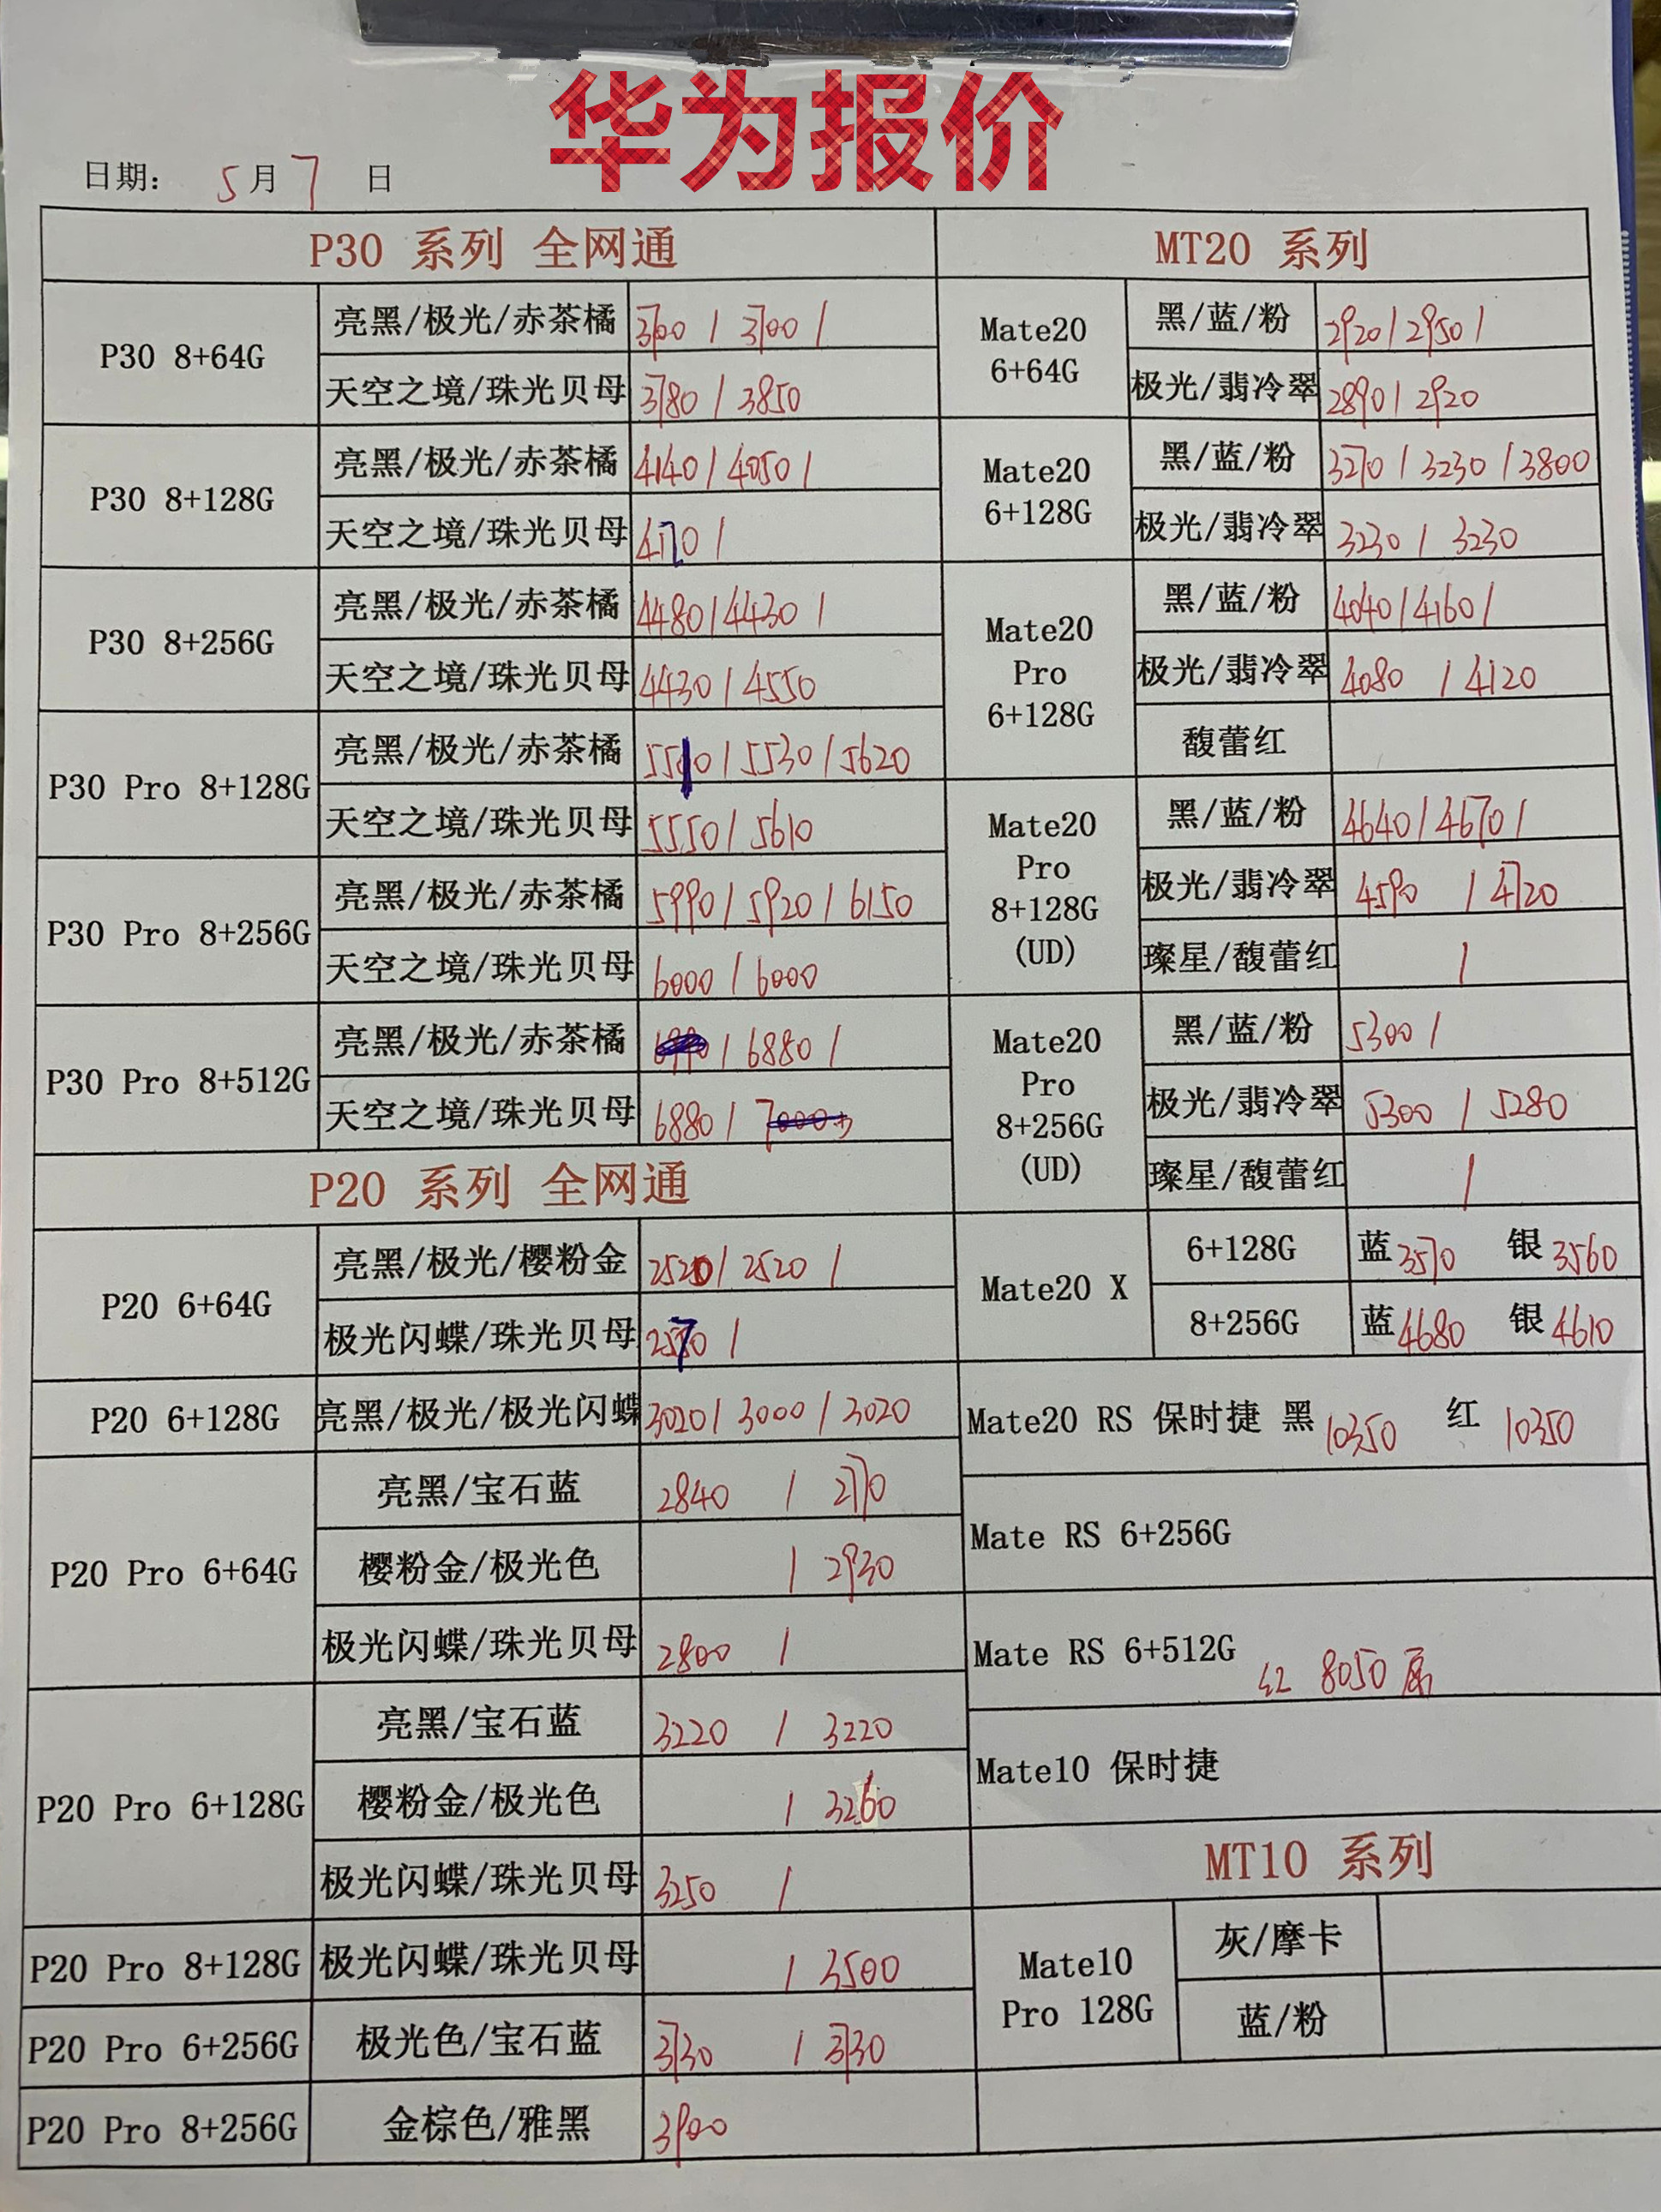 华为报价
日期: 5月7日
P30 系列 全网通
P30 8+64G
亮黑/极光/赤茶橘 3700 / 3700 /
天空之境/珠光贝母 3780 / 3850
P30 8+128G
亮黑/极光/赤茶橘 4140 / 4050 /
天空之境/珠光贝母 4170 /
P30 8+256G
亮黑/极光/赤茶橘 4480 / 4430 /
天空之境/珠光贝母 4430 / 4550
P30 Pro 8+128G
亮黑/极光/赤茶橘 5510 / 5530 / 5620
天空之境/珠光贝母 5550 / 5610
P30 Pro 8+256G
亮黑/极光/赤茶橘 5990 / 5920 / 6150
天空之境/珠光贝母 6000 / 6000
P30 Pro 8+512G
亮黑/极光/赤茶橘 / 6880 /
天空之境/珠光贝母 6880 /
P20 系列 全网通
P20 6+64G
亮黑/极光/樱粉金 2520 / 2520 /
极光闪蝶/珠光贝母 2570 /
P20 6+128G
亮黑/极光/极光闪蝶 3020 / 3000 / 3020
P20 Pro 6+64G
亮黑/宝石蓝 2840 / 2770
樱粉金/极光色 / 2930
极光闪蝶/珠光贝母 2800 /
P20 Pro 6+128G
亮黑/宝石蓝 3220 / 3220
樱粉金/极光色 / 3260
极光闪蝶/珠光贝母 3250 /
P20 Pro 8+128G
极光闪蝶/珠光贝母 / 3500
P20 Pro 6+256G
极光色/宝石蓝 3730 / 3730
P20 Pro 8+256G
金棕色/雅黑 3900
MT20 系列
Mate20
6+64G
黑/蓝/粉 2920 / 2950 /
极光/翡冷翠 2890 / 2920
Mate20
6+128G
黑/蓝/粉 3270 / 3230 / 3800
极光/翡冷翠 3230 / 3230
Mate20
Pro
6+128G
黑/蓝/粉 4040 / 4160 /
极光/翡冷翠 4080 / 4120
馥蕾红
Mate20
Pro
8+128G
(UD)
黑/蓝/粉 4640 / 4670 /
极光/翡冷翠 4590 / 4720
璨星/馥蕾红 /
Mate20
Pro
8+256G
(UD)
黑/蓝/粉 5300 /
极光/翡冷翠 5300 / 5280
璨星/馥蕾红 /
Mate20 X
6+128G 蓝 3570 银 3560
8+256G 蓝 4680 银 4610
Mate20 RS 保时捷 黑 10350 红 10350
Mate RS 6+256G
Mate RS 6+512G 红 8050
Mate10 保时捷
MT10 系列
Mate10
Pro 128G
灰/摩卡
蓝/粉